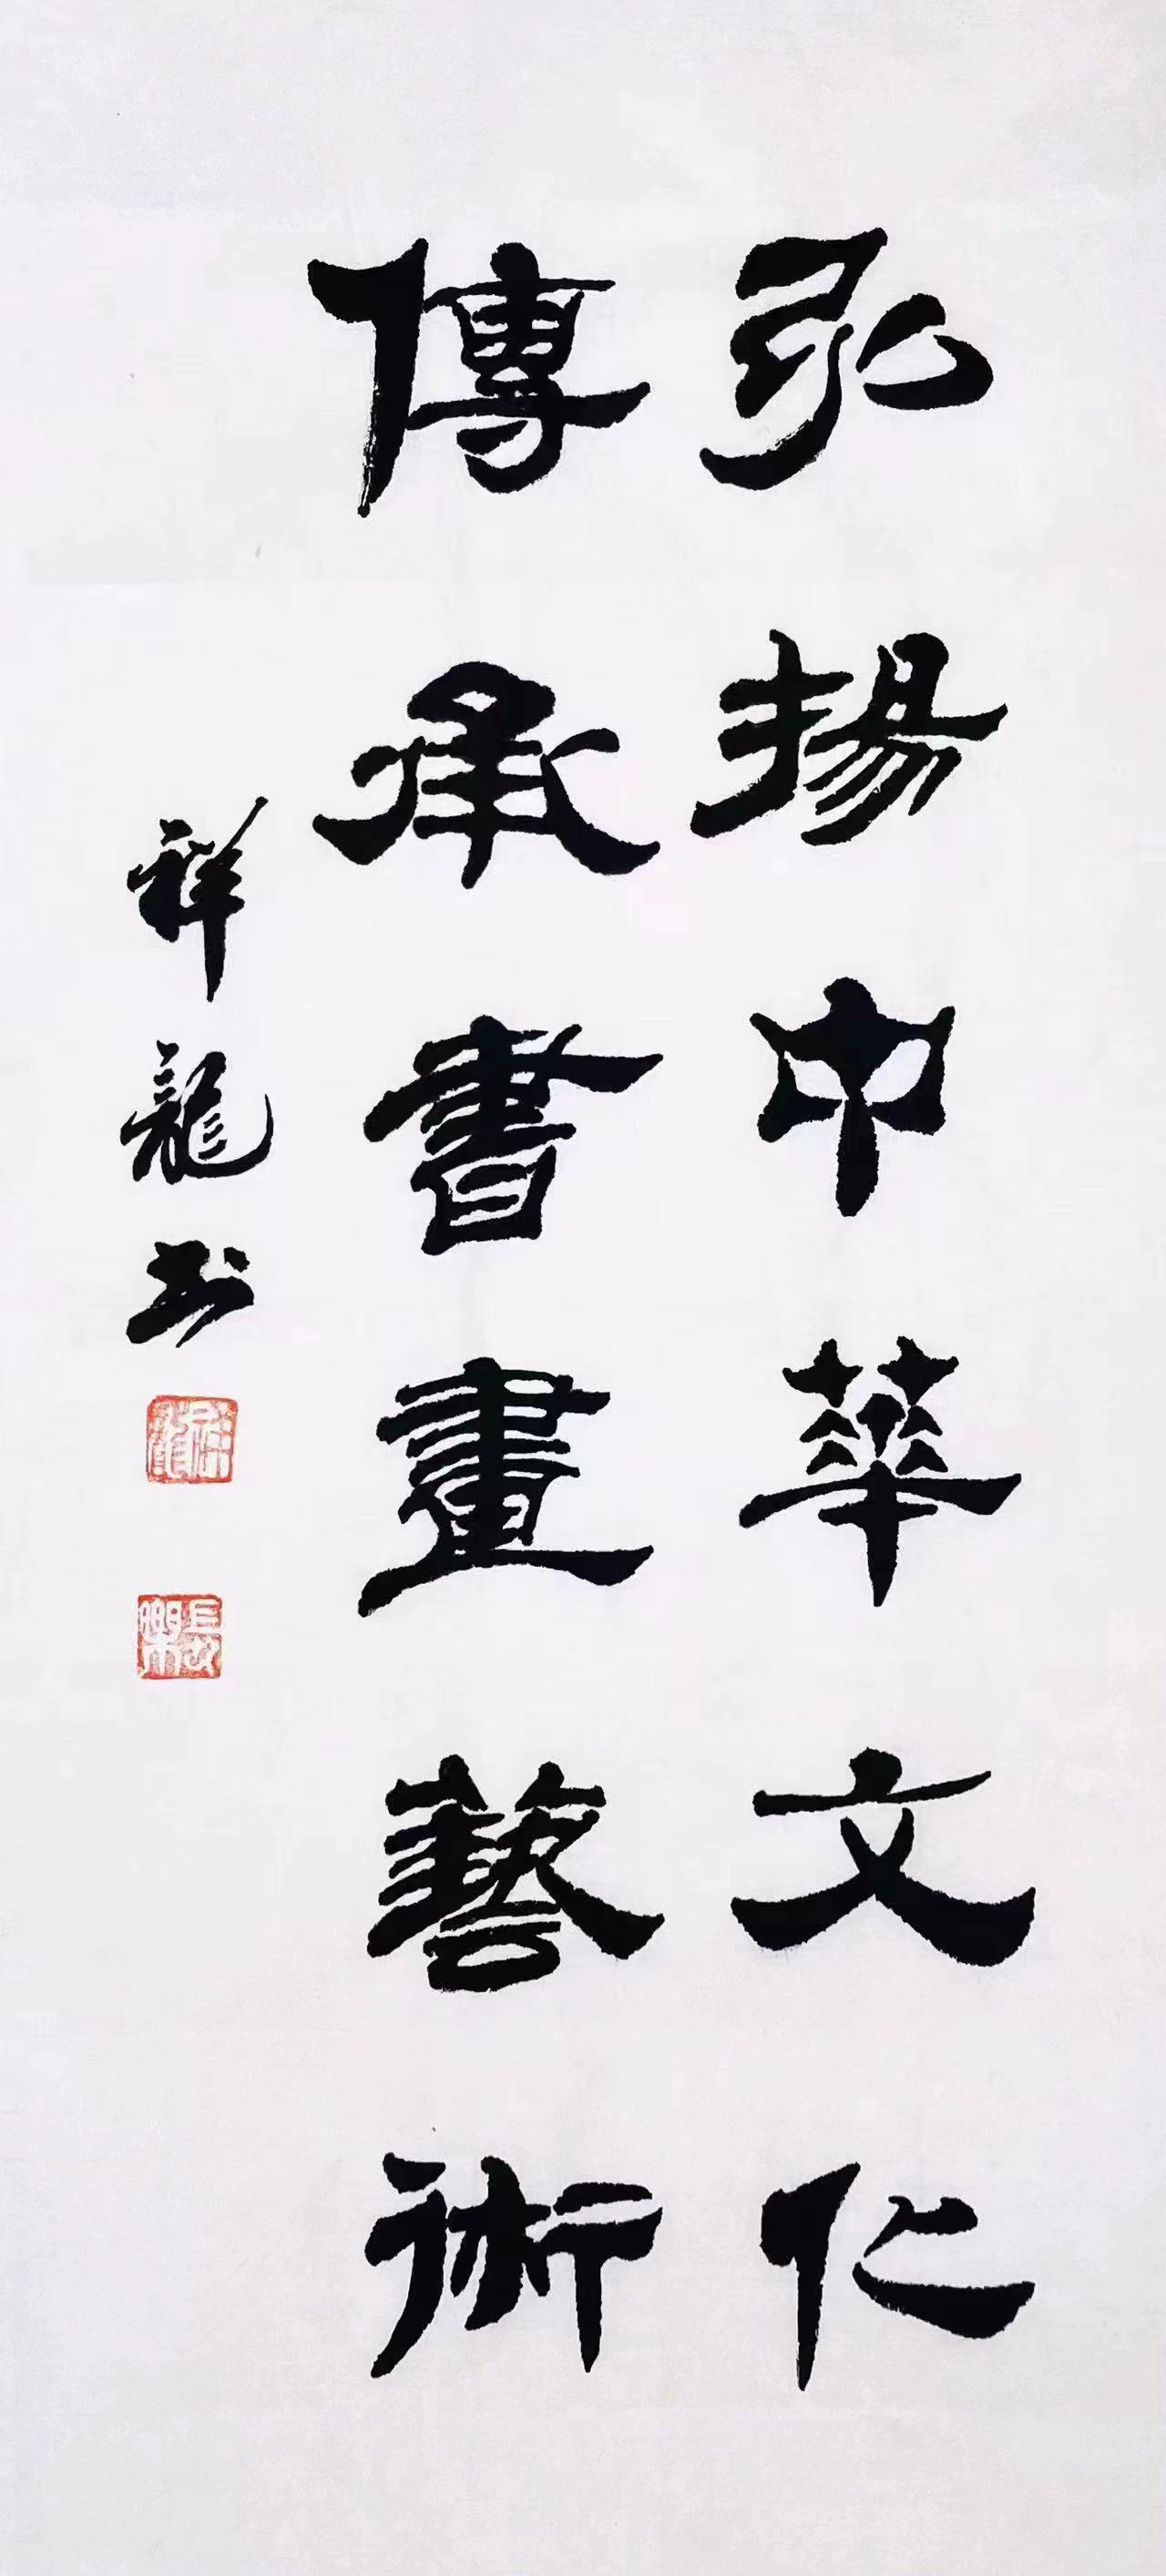 弘揚中華文化
傳承書畫藝術
祥龍书
長樂